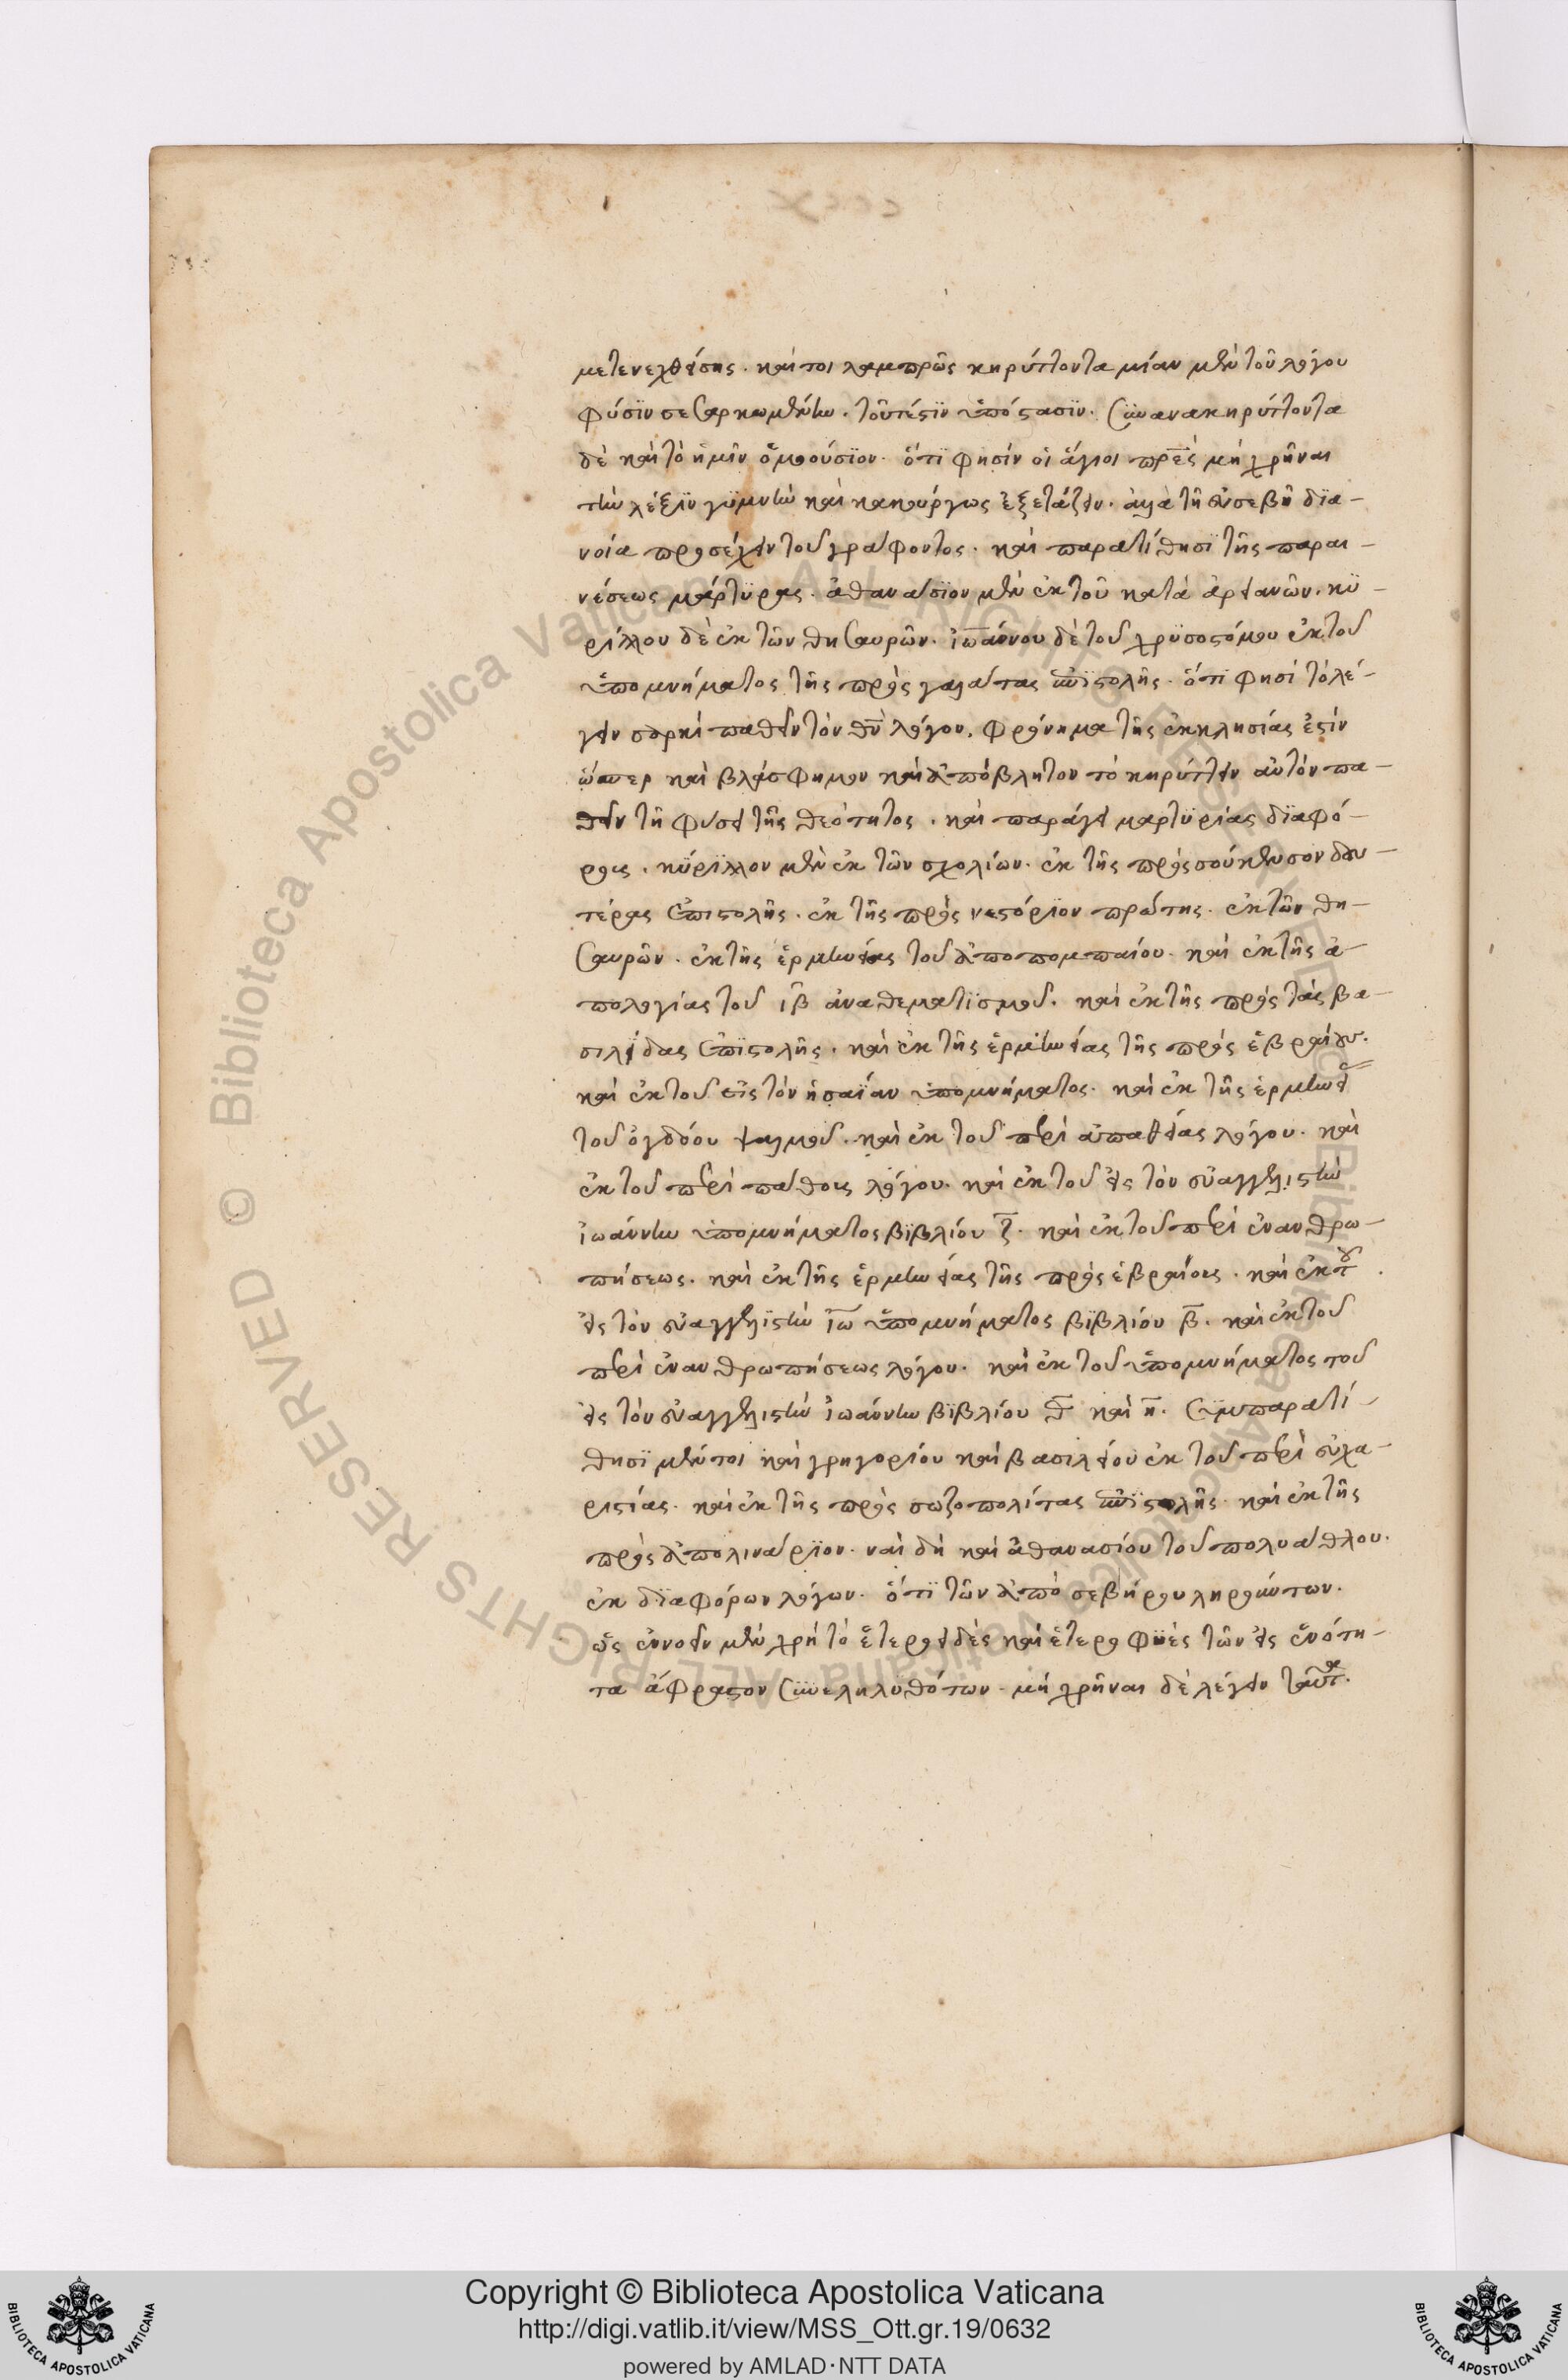 μετενεχθείσης. καίτοι λαμπρῶς κηρύττοντα μίαν μὲν τοῦ λόγου
φύσϊν σεσαρκωμένην. τουτέστϊν ὑπόστασϊν. συνανακηρύττοντα
δὲ καὶ τὸ ἡμῖν ὁμοούσϊον. ὅτϊ φησὶν οἱ ἅγιοι πρ̅ε̅ς μὴ χρῆναι
τὴν λέξϊν γϋμνὴν καὶ κακούργως ἐξετάζειν. ἀλλὰ τῆ εὐσεβῆ δϊα-
νοία προσέχειν τοῦ γράφοντος. καὶ παρατίθησϊ τῆς παραι-
νέσεως μάρτϋρας. ἀθανάσϊον μὲν ἐκ τοῦ κατὰ ἀρειανῶν. κϋ-
ρίλλου δὲ ἐκ τῶν θησαυρῶν. ἰωάννου δὲ τοῦ χρϋσοστόμου ἐκ τοῦ
ὑπομνήματος τῆς πρὸς γαλάτας ἐπϊστολῆς. ὅτϊ φησὶ τὸ λέ-
γειν σαρκὶ παθεῖν τὸν θ̅ν̅ λόγον, φρόνημα τῆς ἐκκλησίας ἐστὶν
ὥσπερ καὶ βλάσφημον καὶ ἀπόβλητον τὸ κηρύττειν αὐτὸν πα-
θεῖν τῆ φύσει τῆς θεότητος. καὶ παράγει μαρτϋρίας δϊαφό-
ρους. κϋρϊλλον μὲν ἐκ τῶν σχολίων. ἐκ τῆς πρὸς σούκενσον δευ-
τέρας ἐπιστολῆς. ἐκ τῆς πρὸς νεστόρϊον πρώτης. ἐκ τῶν θη-
σαυρῶν. ἐκ τῆς ἑρμηνείας τοῦ ἀποπομπαίου. καὶ ἐκ τῆς ἀ-
πολογίας τοῦ ι̅β̅ ἀναθεματϊσμοῦ. καὶ ἐκ τῆς πρὸς τὰς βα-
σιλείδας ἐπϊστολῆς. καὶ ἐκ τῆς ἑρμηνείας τῆς πρὸς ἑβραίους.
καὶ ἐκ τοῦ εἰς τὸν ἠσαΐαν ὑπομνήματος. καὶ ἐκ τῆς ἑρμηνείας
τοῦ ὀγδόου ψαλμοῦ. καὶ ἐκ τοῦ περὶ ἀπαθείας λόγου. καὶ
ἐκ τοῦ περὶ πάθους λόγου. καὶ ἐκ τοῦ εἰς τὸν εὐαγγελιστὴν
ἰωάννην ὑπομνήματος βϊβλίου ζ̅. καὶ ἐκ τοῦ περὶ ἐνανθρω-
πήσεως. καὶ ἐκ τῆς ἑρμηνείας τῆς πρὸς ἑβραίους. καὶ ἐκ τοῦ
εἰς τὸν εὐαγγελϊστὴν ἰ̅ω̅ ὑπομνήματος βϊβλίου β̅. καὶ ἐκ τοῦ
περὶ ἐνανθρωπήσεως λόγου. καὶ ἐκ τοῦ ὑπομνήματος τοῦ
εἰς τὸν εὐαγγελιστὴν ἰωάννην βϊβλίου θ̅ καὶ η̅. συμπαρατί-
θησϊ μέντοι καὶ γρηγορίου καὶ βασιλείου ἐκ τοῦ περὶ εὐχα-
ριστίας. καὶ ἐκ τῆς πρὸς σωζοπολίτας ἐπϊστολῆς. καὶ ἐκ τῆς
πρὸς ἀπολινάρϊον. ναὶ δὴ καὶ ἀθανασίου τοῦ πολυάθλου.
ἐκ δϊαφόρων λόγων. ὅτϊ τῶν ἀπὸ σεβήρου ληρούντων.
ὡς ἐννοεῖν μὲν χρὴ τὸ ἑτεροειδὲς καὶ ἑτεροφϋὲς τῶν εἰς ἑνότη-
τα ἄφραστον συνεληλϋθότων. μὴ χρῆναι δὲ λέγειν ταῦτα.
Copyright © Biblioteca Apostolica Vaticana
http://digi.vatlib.it/view/MSS_Ott.gr.19/0632
powered by AMLAD·NTT DATA